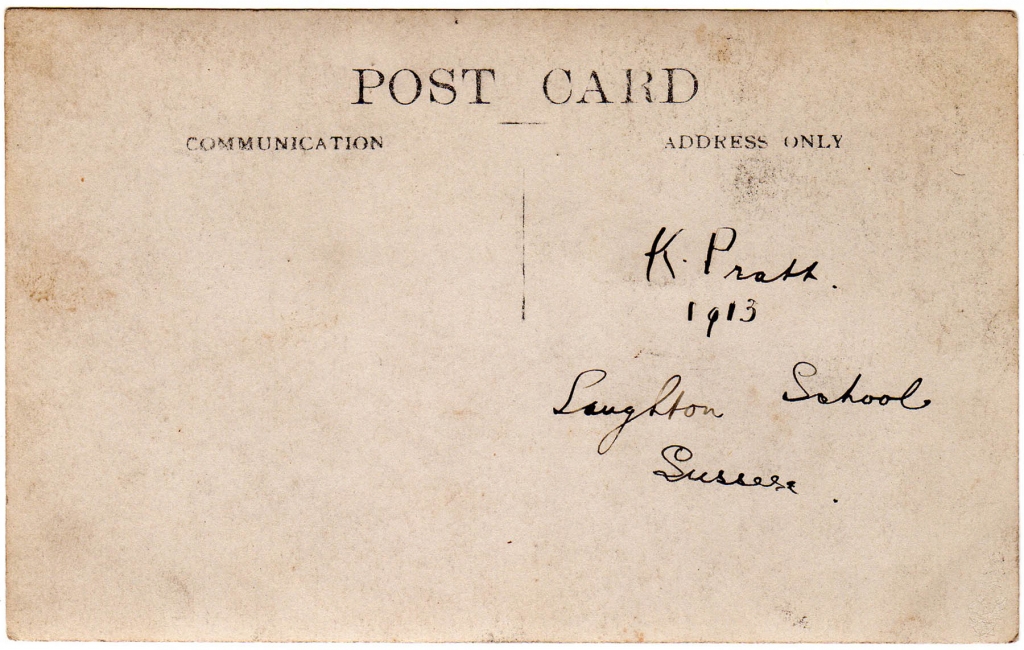 POST CARD
COMMUNICATION
ADDRESS ONLY
K. Pratt.
1913
Laughton School
Sussex.